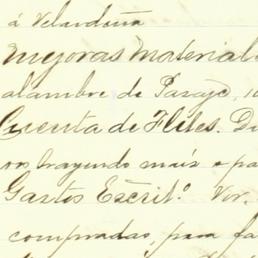 á Velardeña
Mejoras Material
alambre de Pasaje, 10
Cuenta de Fletes. Di
os trayendo maiz o pa
Gastos Escrit.º Vor.
compradas, para fa